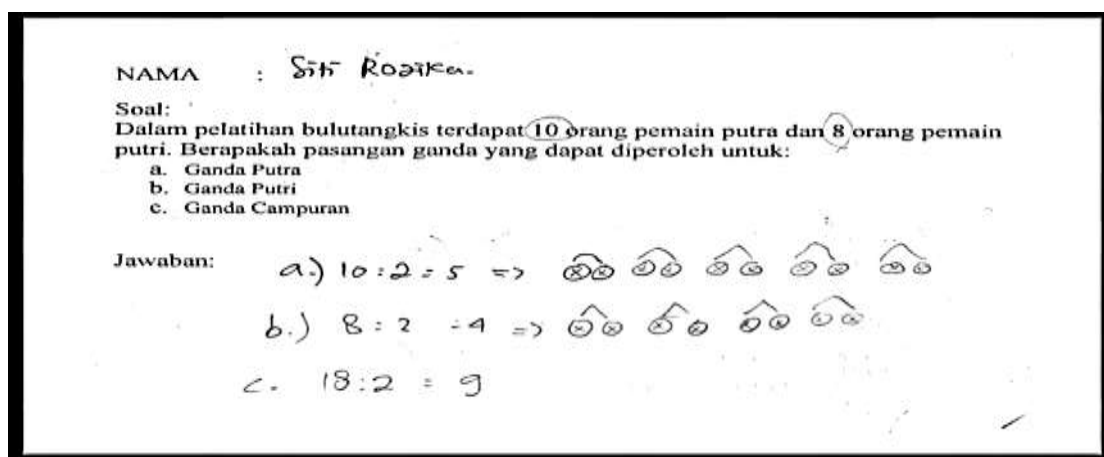 NAMA : Siti Rozika.
Soal:
Dalam pelatihan bulutangkis terdapat 10 orang pemain putra dan 8 orang pemain
putri. Berapakah pasangan ganda yang dapat diperoleh untuk:
a. Ganda Putra
b. Ganda Putri
c. Ganda Campuran
Jawaban: a.) 10 : 2 = 5 =>
b.) 8 : 2 = 4 =>
c. 18 : 2 = 9